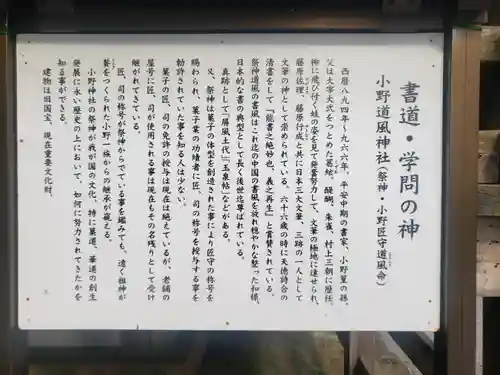 書道・学問の神
小野道風神社(祭神・小野匠守道風命)
西暦八九四年~九六六年、平安中期の書家、小野篁の孫、
父は大宰大弐をつとめた葛絃。醍醐、朱雀、村上三朝に歴任、
柳に飛び付く蛙の姿を見て発奮努力して、文筆の極地に達せられ、
藤原佐理、藤原行成と共に日本三大文筆、三跡の一人として
文筆の神として崇められている。六十六歳の時に天徳詩合の
清書をして「能書之絶妙也、羲之再生」と賞賛されている。
祭神道風の書風はこれ迄の中国の書風を放れ穏やかな整った和様、
日本的な書の典型として長く後世迄尊ばれている。
真跡として「屏風土代」「玉泉帖」などがある。
又、祭神は菓子の体型を創造された事により匠守の称号を
賜わられ、菓子業の功績者に匠、司の称号を授与する事を
勅許されていた事を知る人は少ない。
菓子の匠、司の免許の授与は現在は絶えているが、老舗の
屋号に匠、司が使用される事は現在もその名残りとして受け
継がれてきている。
匠、司の称号が祭神からでている事を鑑みても、遠く祖神が
餐をつくられた小野一族からの継承が窺える。
小野神社の祭神が我が国の文化、特に菓道、華道の創生
発展に永い歴史の上において、如何に努力されてきたかを
知る事ができる。
建物は旧国宝、現在重要文化財。